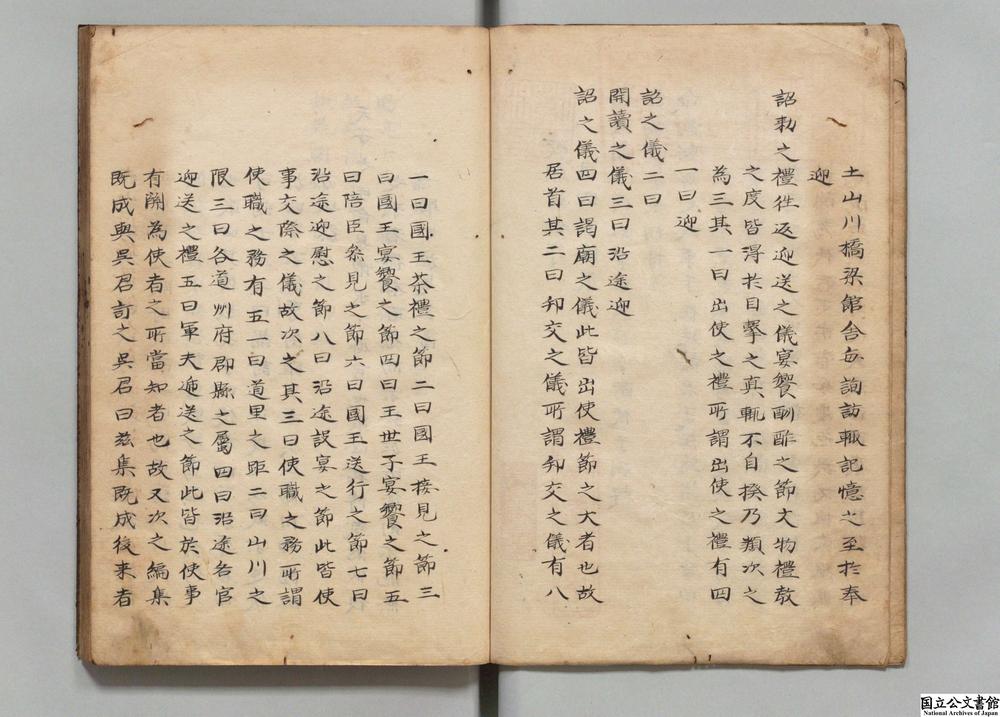 土山川橋梁館舎每詢訪輒記憶之至於奉
迎
詔勅之禮徃返迎送之儀宴饗酬酢之節文物禮敎
之度皆淂扵目擊之真輒不自揆乃類次之
為三其一曰出使之禮所謂出使之禮有四
一曰迎
詔之儀二曰
開讀之儀三曰沿途迎
詔之儀四曰謁廟之儀此皆出使禮節之大者也故
居首其二曰知交之儀所謂知交之儀有八
一曰國王茶禮之節二曰國王接見之節三
曰國王宴饗之節四曰王世子宴饗之節五
曰陪臣叅見之節六曰國王送行之節七曰
沿途迎慰之節八曰沿途設宴之節此皆使
事交際之儀故次之其三曰使職之務所謂
使職之務有五一曰道里之距二曰山川之
限三曰各道州府郡縣之屬四曰沿途各官
迎送之禮五曰軍夫遞送之節此皆於使事
有關為使者之所當知者也故又次之編集
既成與吳君訂之吳君曰茲集既成後来者
国立公文書館
National Archives of Japan